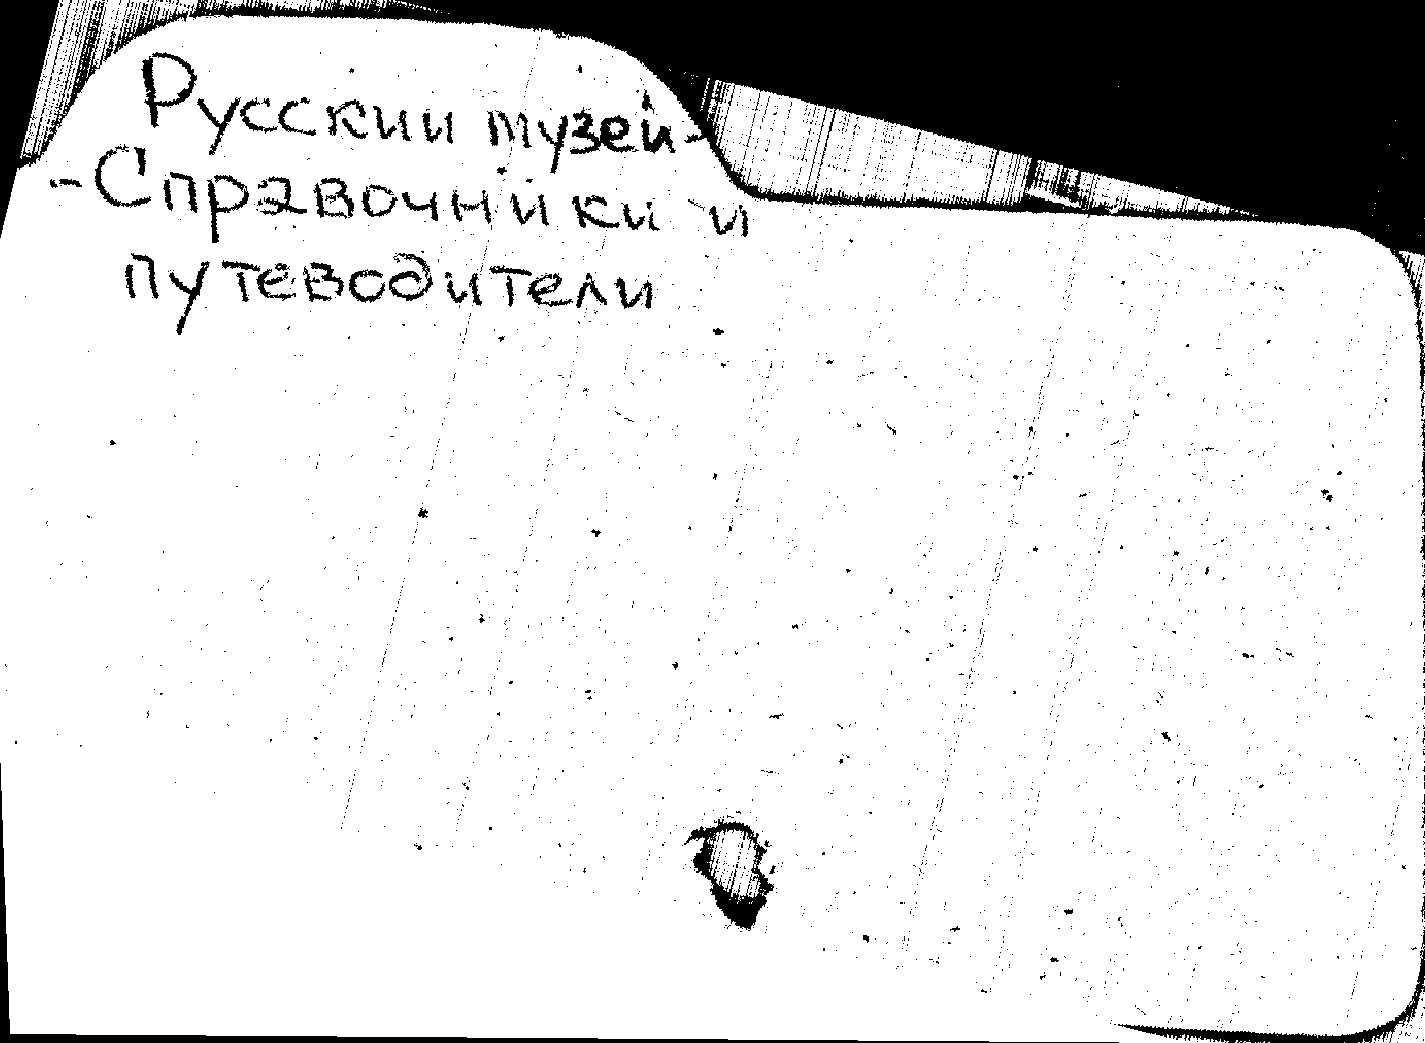 Русский музей-
-Справочники и
путеводители